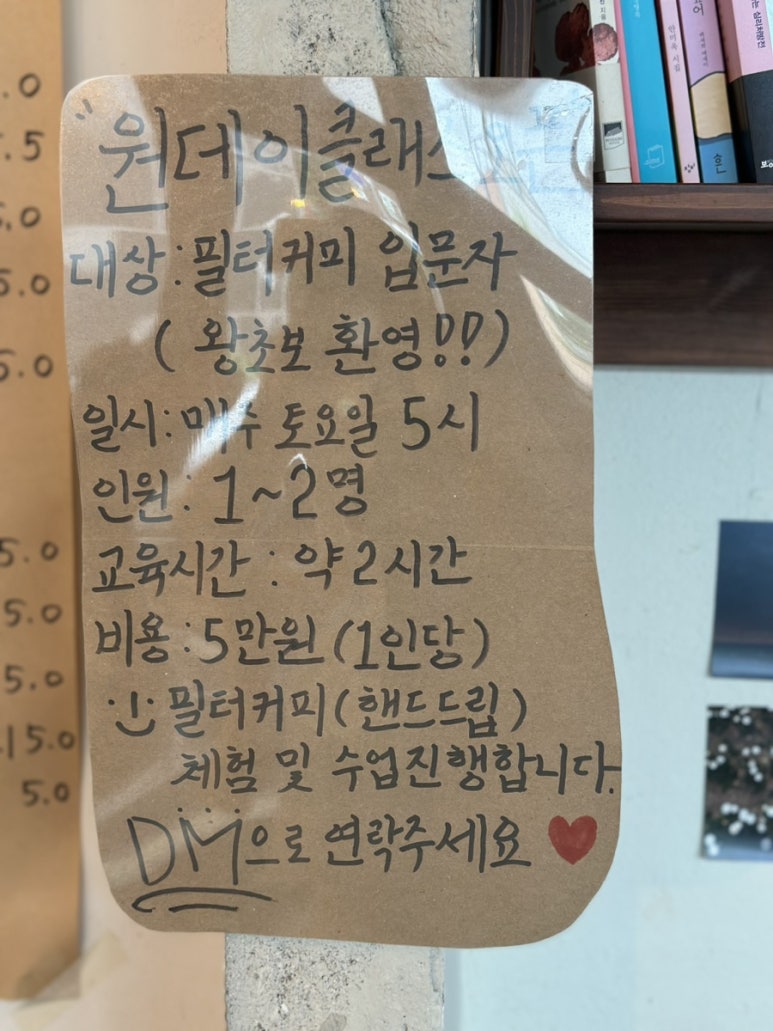 "원데이클래스"
대상: 필터커피 입문자
( 왕초보 환영!!)
일시: 매주 토요일 5시
인원: 1~2명
교육시간 : 약 2시간
비용: 5만원 (1인당)
필터커피(핸드드립)
체험 및 수업진행합니다.
DM으로 연락주세요 ♥
.0
.5
5.0
5.0
5.0
5.0
5.0
15.0
5.0